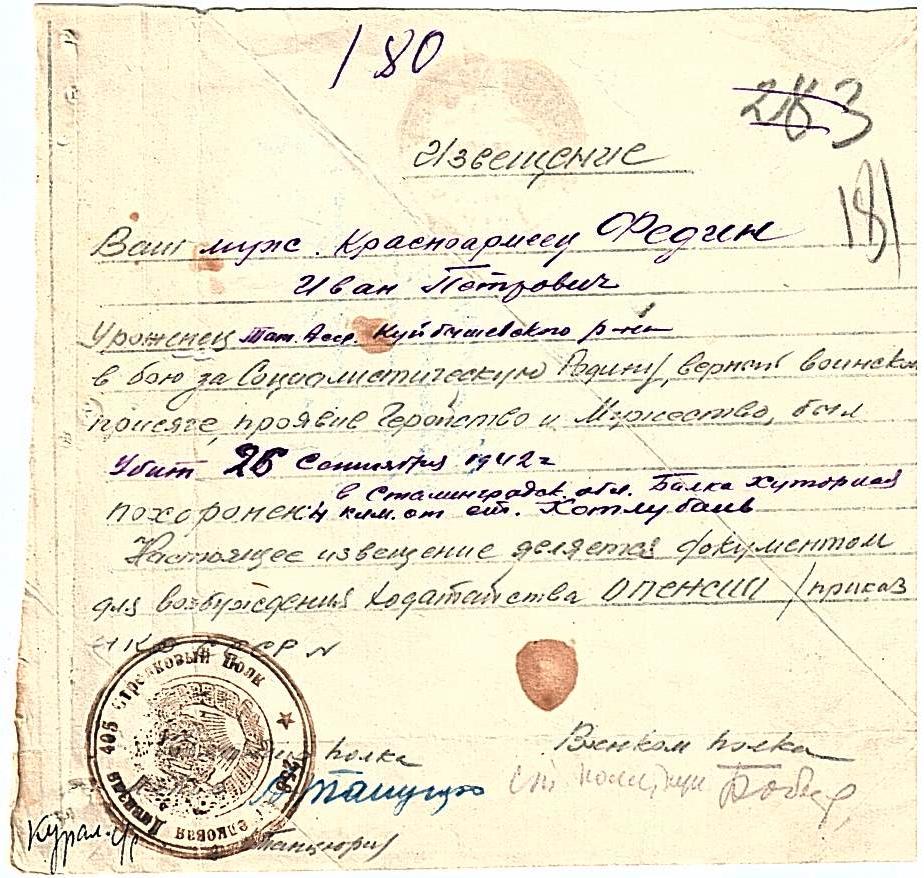 180
283
Извещение
181
Ваш муж. Красноармеец Федин
Иван Петрович
Уроженец Тат. Асср. Куйбышевского р-на
в бою за Социалистическую Родину, верный воинской
присяге, проявив Геройство и Мужество, был
Убит 26 Сентября 1942 г
в Сталинградск. обл. Балка Хуторная
похоронен 4 клм. от ст. Котлубань
Настоящее извещение является документом
для возбуждения ходатайства о пенсии /приказ
НКО СССР №
405 Стрелковый Полк
258 Стрелковая Дивизия
полка
Военком полка
Курал. с/с